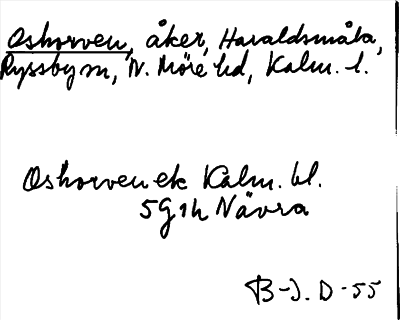 Oshorven, åker, Haraldsmåla,
Ryssby sn, N. Möre hd, Kalm. l.
Oshorven ek Kalm. bl.
5G1h Nävra
B-J. D-55